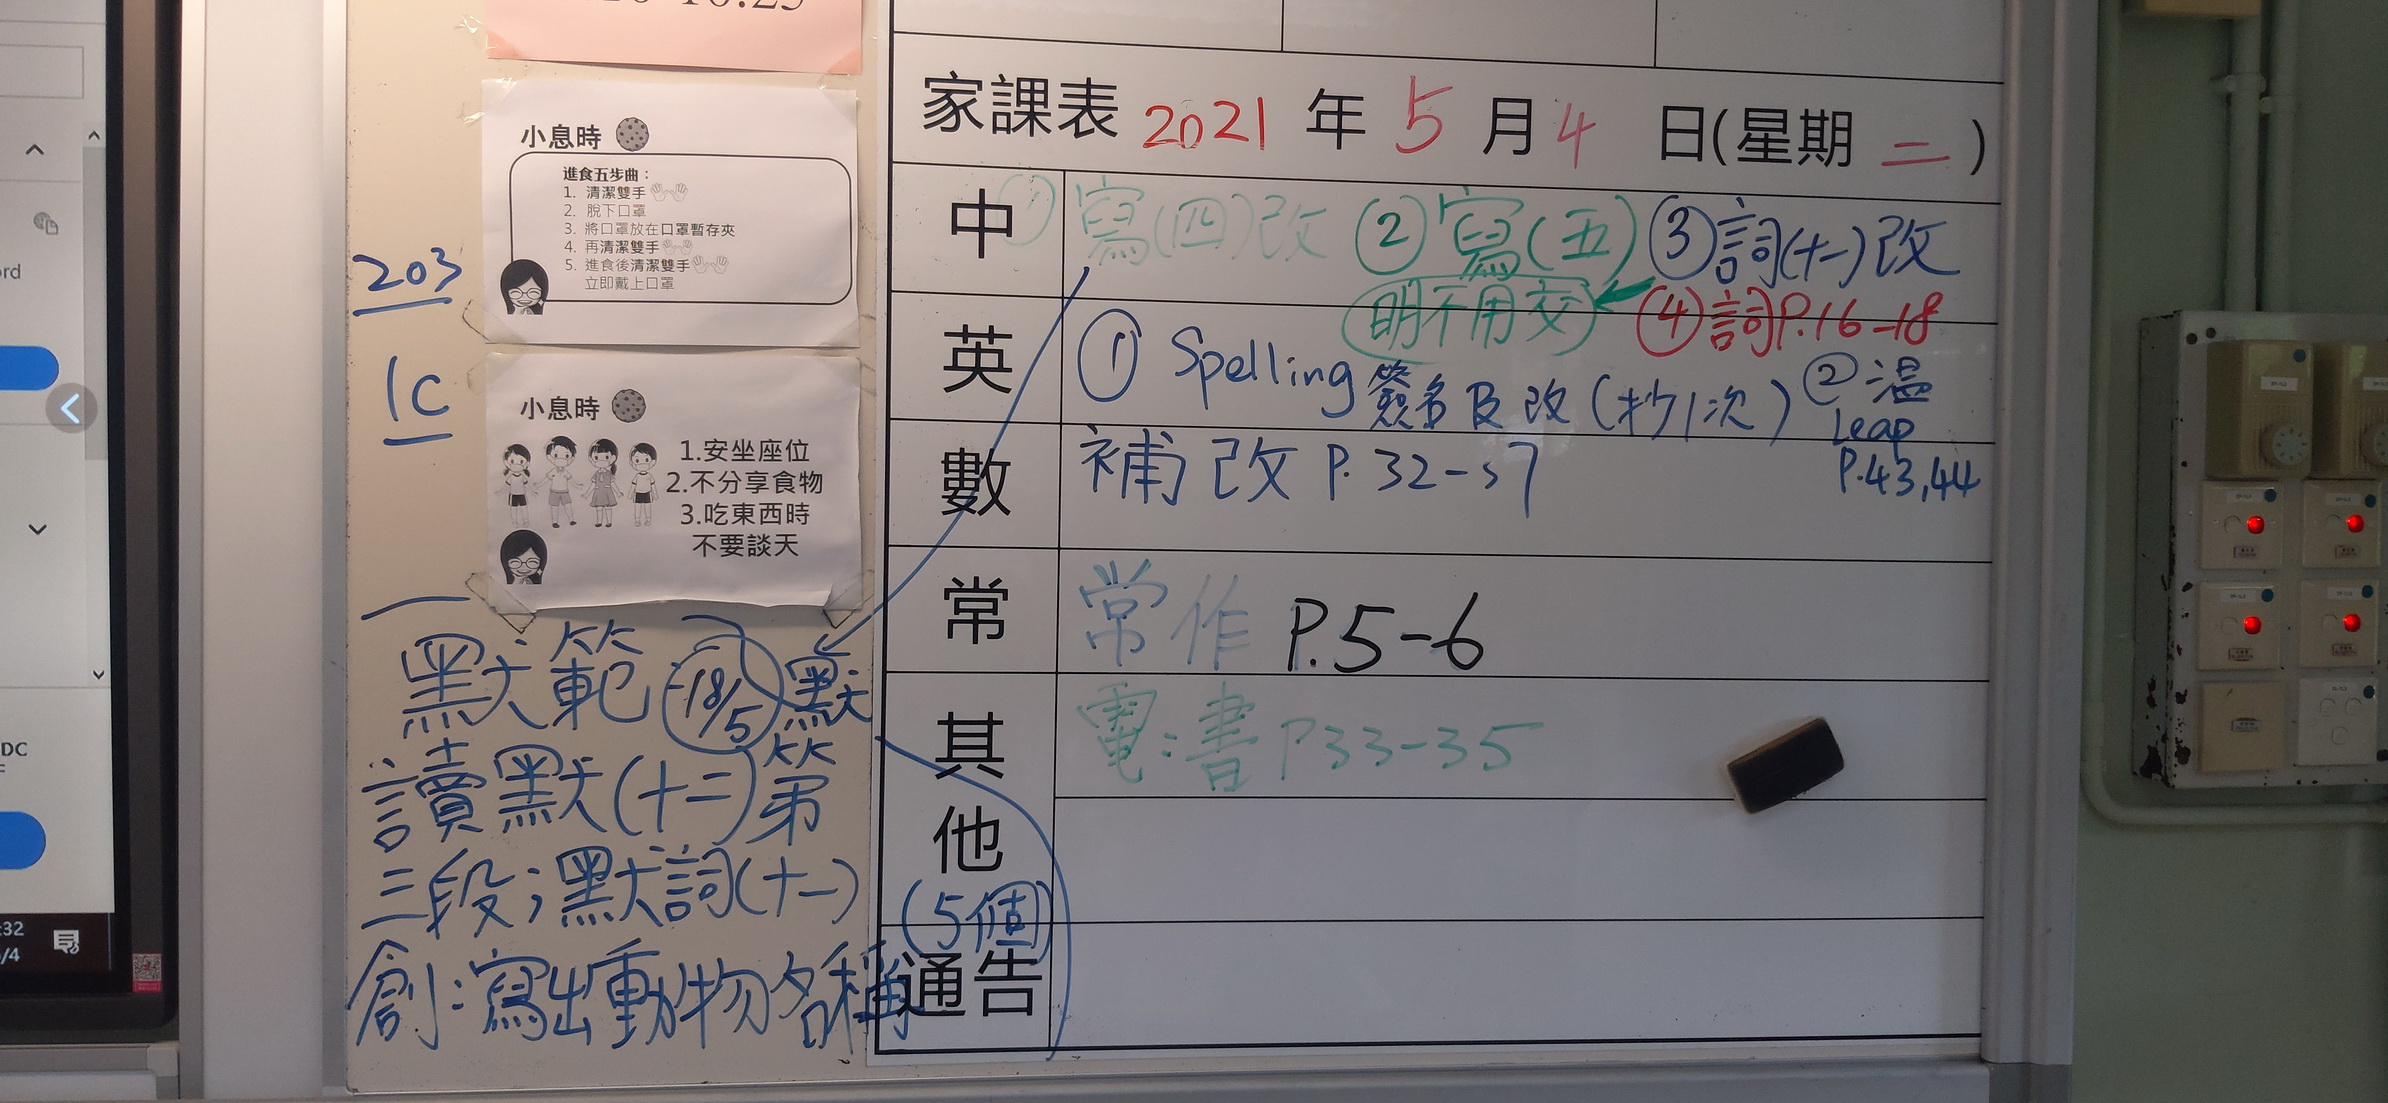 小息時
進食五步曲：
1. 清潔雙手
2. 脫下口罩
3. 將口罩放在口罩暫存夾
4. 再清潔雙手
5. 進食後清潔雙手
立即戴上口罩
203
1C
小息時
1.安坐座位
2.不分享食物
3.吃東西時
不要談天
默範 18/5 默
讀默(十二)第
三段；默詞(十一)
(5個)
創：寫出動物名稱
家課表 2021 年 5 月 4 日(星期 二 )
中 ① 寫(四)改 ② 寫(五) ③ 詞(十一)改
明不用交 ④ 詞P.16-18
英 ① Spelling 簽名及改(抄1次) ② 溫
Leap
P.43,44
數 補改 P. 32-37
常 常作 P.5-6
其他 電：書 P33-35
通告
ord
DC
:32
/4